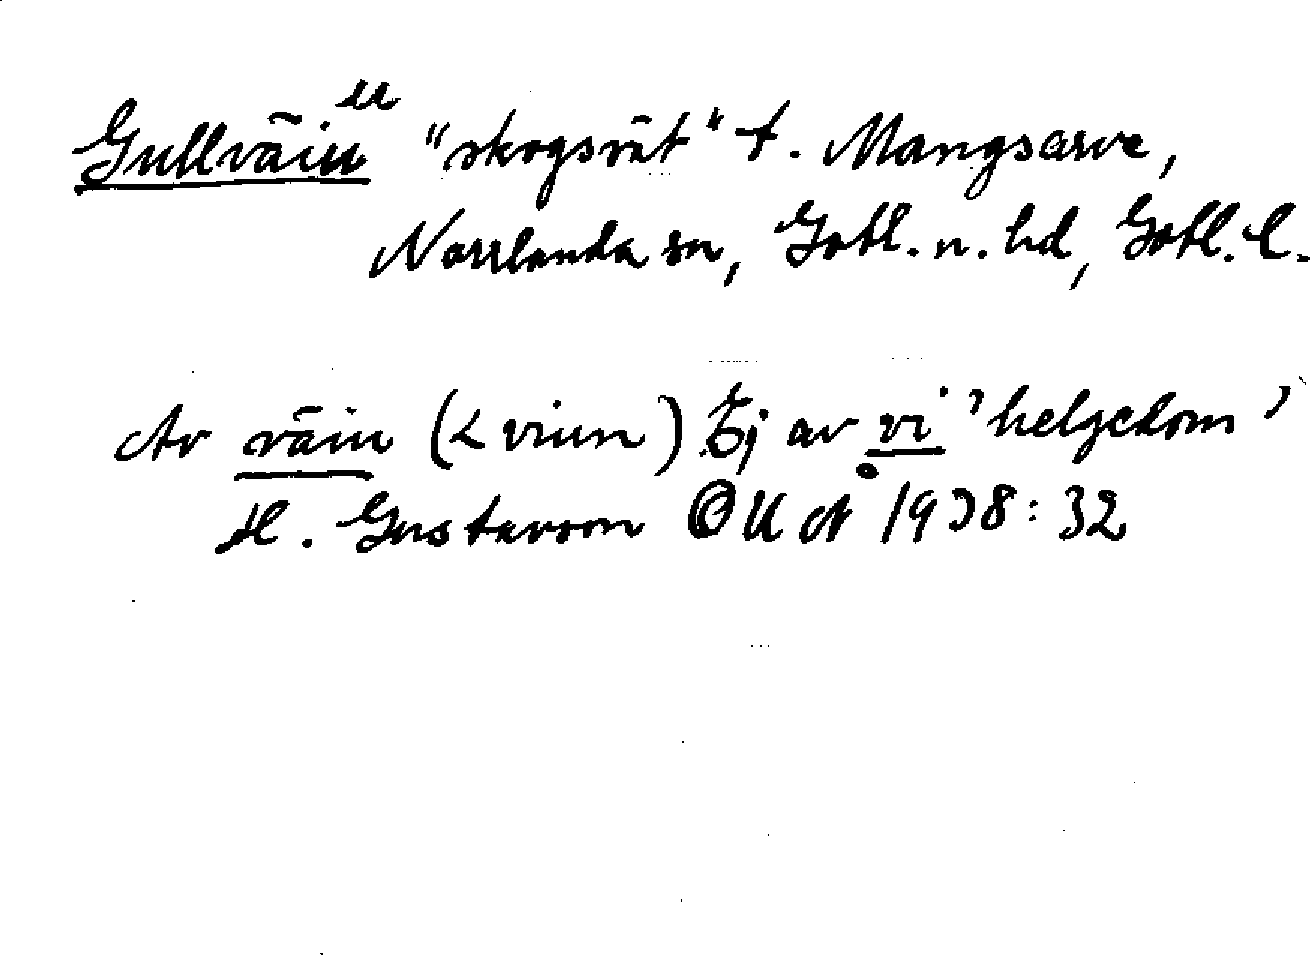 Gullväiu u "skogsvät" t. Mangsarve,
Norrlanda sn, Gotl. n. hd, Gotl. l.
Av väiu (< viun) Ej av vi 'helgedom'
H. Gustavson OUÅ 1938:32